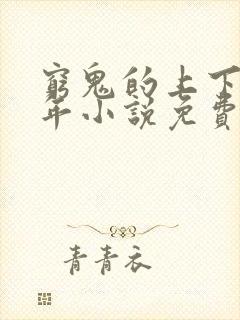 窮鬼的上下
年小說免費
青青衣